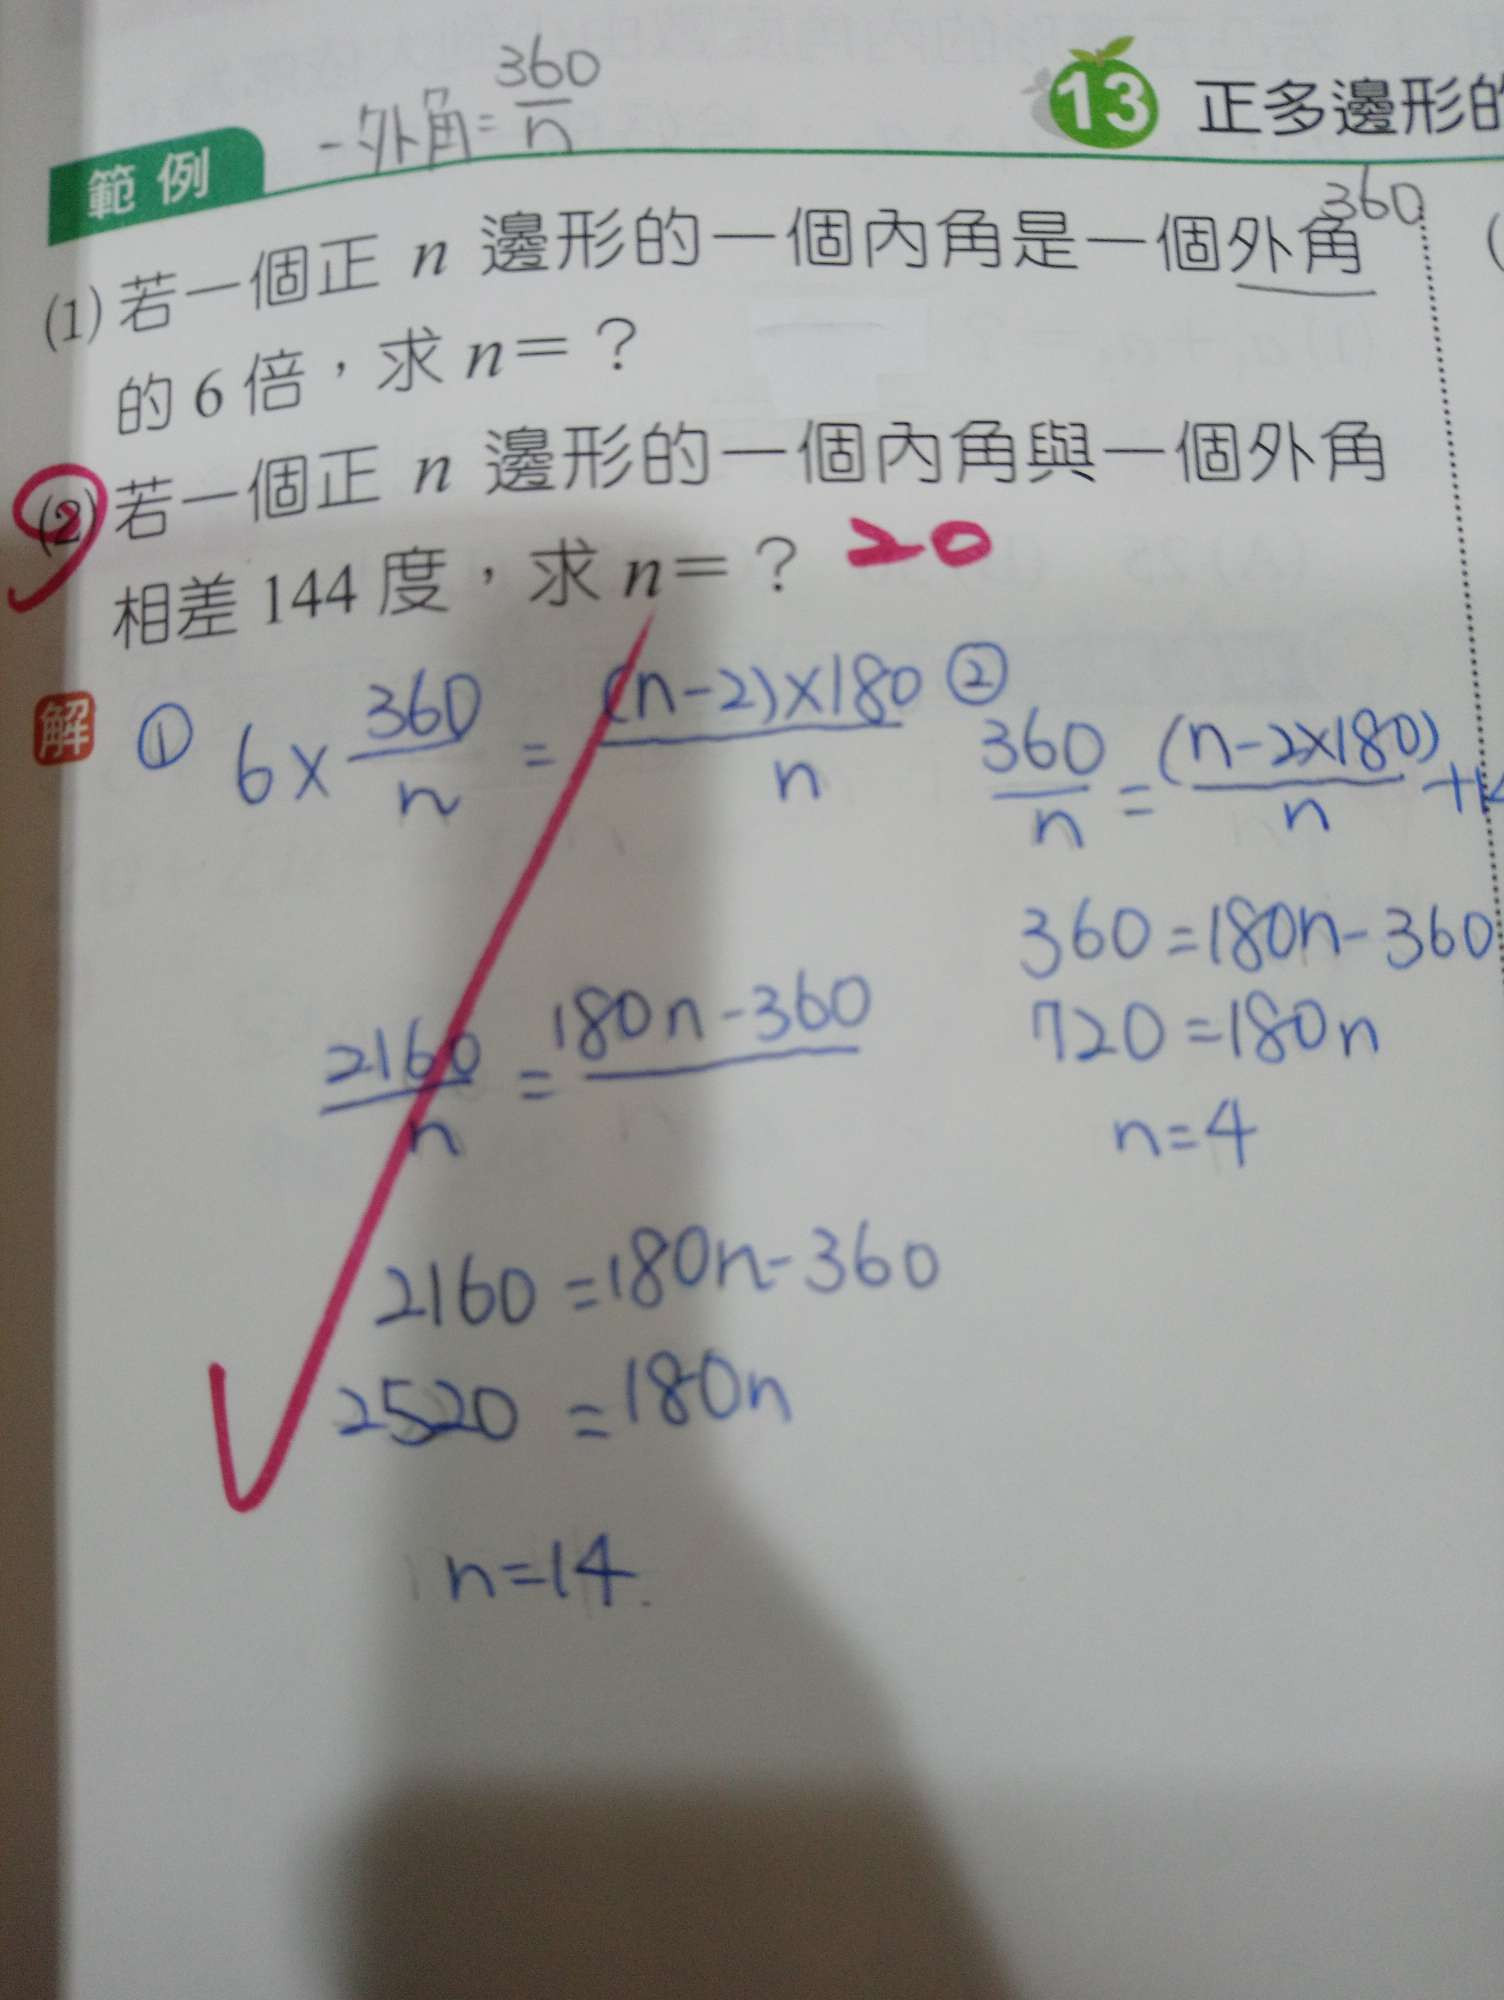 一外角=360/n
13 正多邊形的
範例
360
(1) 若一個正 n 邊形的一個內角是一個外角
的 6 倍，求 n=？
(2) 若一個正 n 邊形的一個內角與一個外角
相差 144 度，求 n=？ 20
解
① 6×360/n = (n-2)×180/n
2160/n = 180n-360
2160=180n-360
2520=180n
n=14
② 360/n = (n-2×180)/n +14
360=180n-360
720=180n
n=4